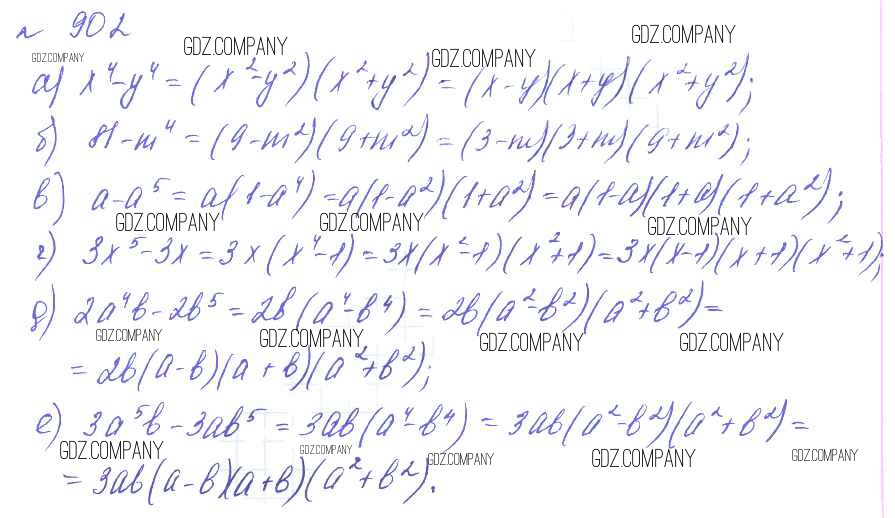 № 902
GDZ.COMPANY GDZ.COMPANY GDZ.COMPANY GDZ.COMPANY
а) x⁴-y⁴ = (x²-y²)(x²+y²) = (x-y)(x+y)(x²+y²);
б) 81-m⁴ = (9-m²)(9+m²) = (3-m)(3+m)(9+m²);
в) a-a⁵ = a(1-a⁴) = a(1-a²)(1+a²) = a(1-a)(1+a)(1+a²);
GDZ.COMPANY GDZ.COMPANY GDZ.COMPANY
г) 3x⁵-3x = 3x(x⁴-1) = 3x(x²-1)(x²+1) = 3x(x-1)(x+1)(x²+1);
д) 2a⁴b-2b⁵ = 2b(a⁴-b⁴) = 2b(a²-b²)(a²+b²) =
GDZ.COMPANY GDZ.COMPANY GDZ.COMPANY GDZ.COMPANY
= 2b(a-b)(a+b)(a²+b²);
е) 3a⁵b-3ab⁵ = 3ab(a⁴-b⁴) = 3ab(a²-b²)(a²+b²) =
GDZ.COMPANY GDZ.COMPANY GDZ.COMPANY GDZ.COMPANY GDZ.COMPANY
= 3ab(a-b)(a+b)(a²+b²).